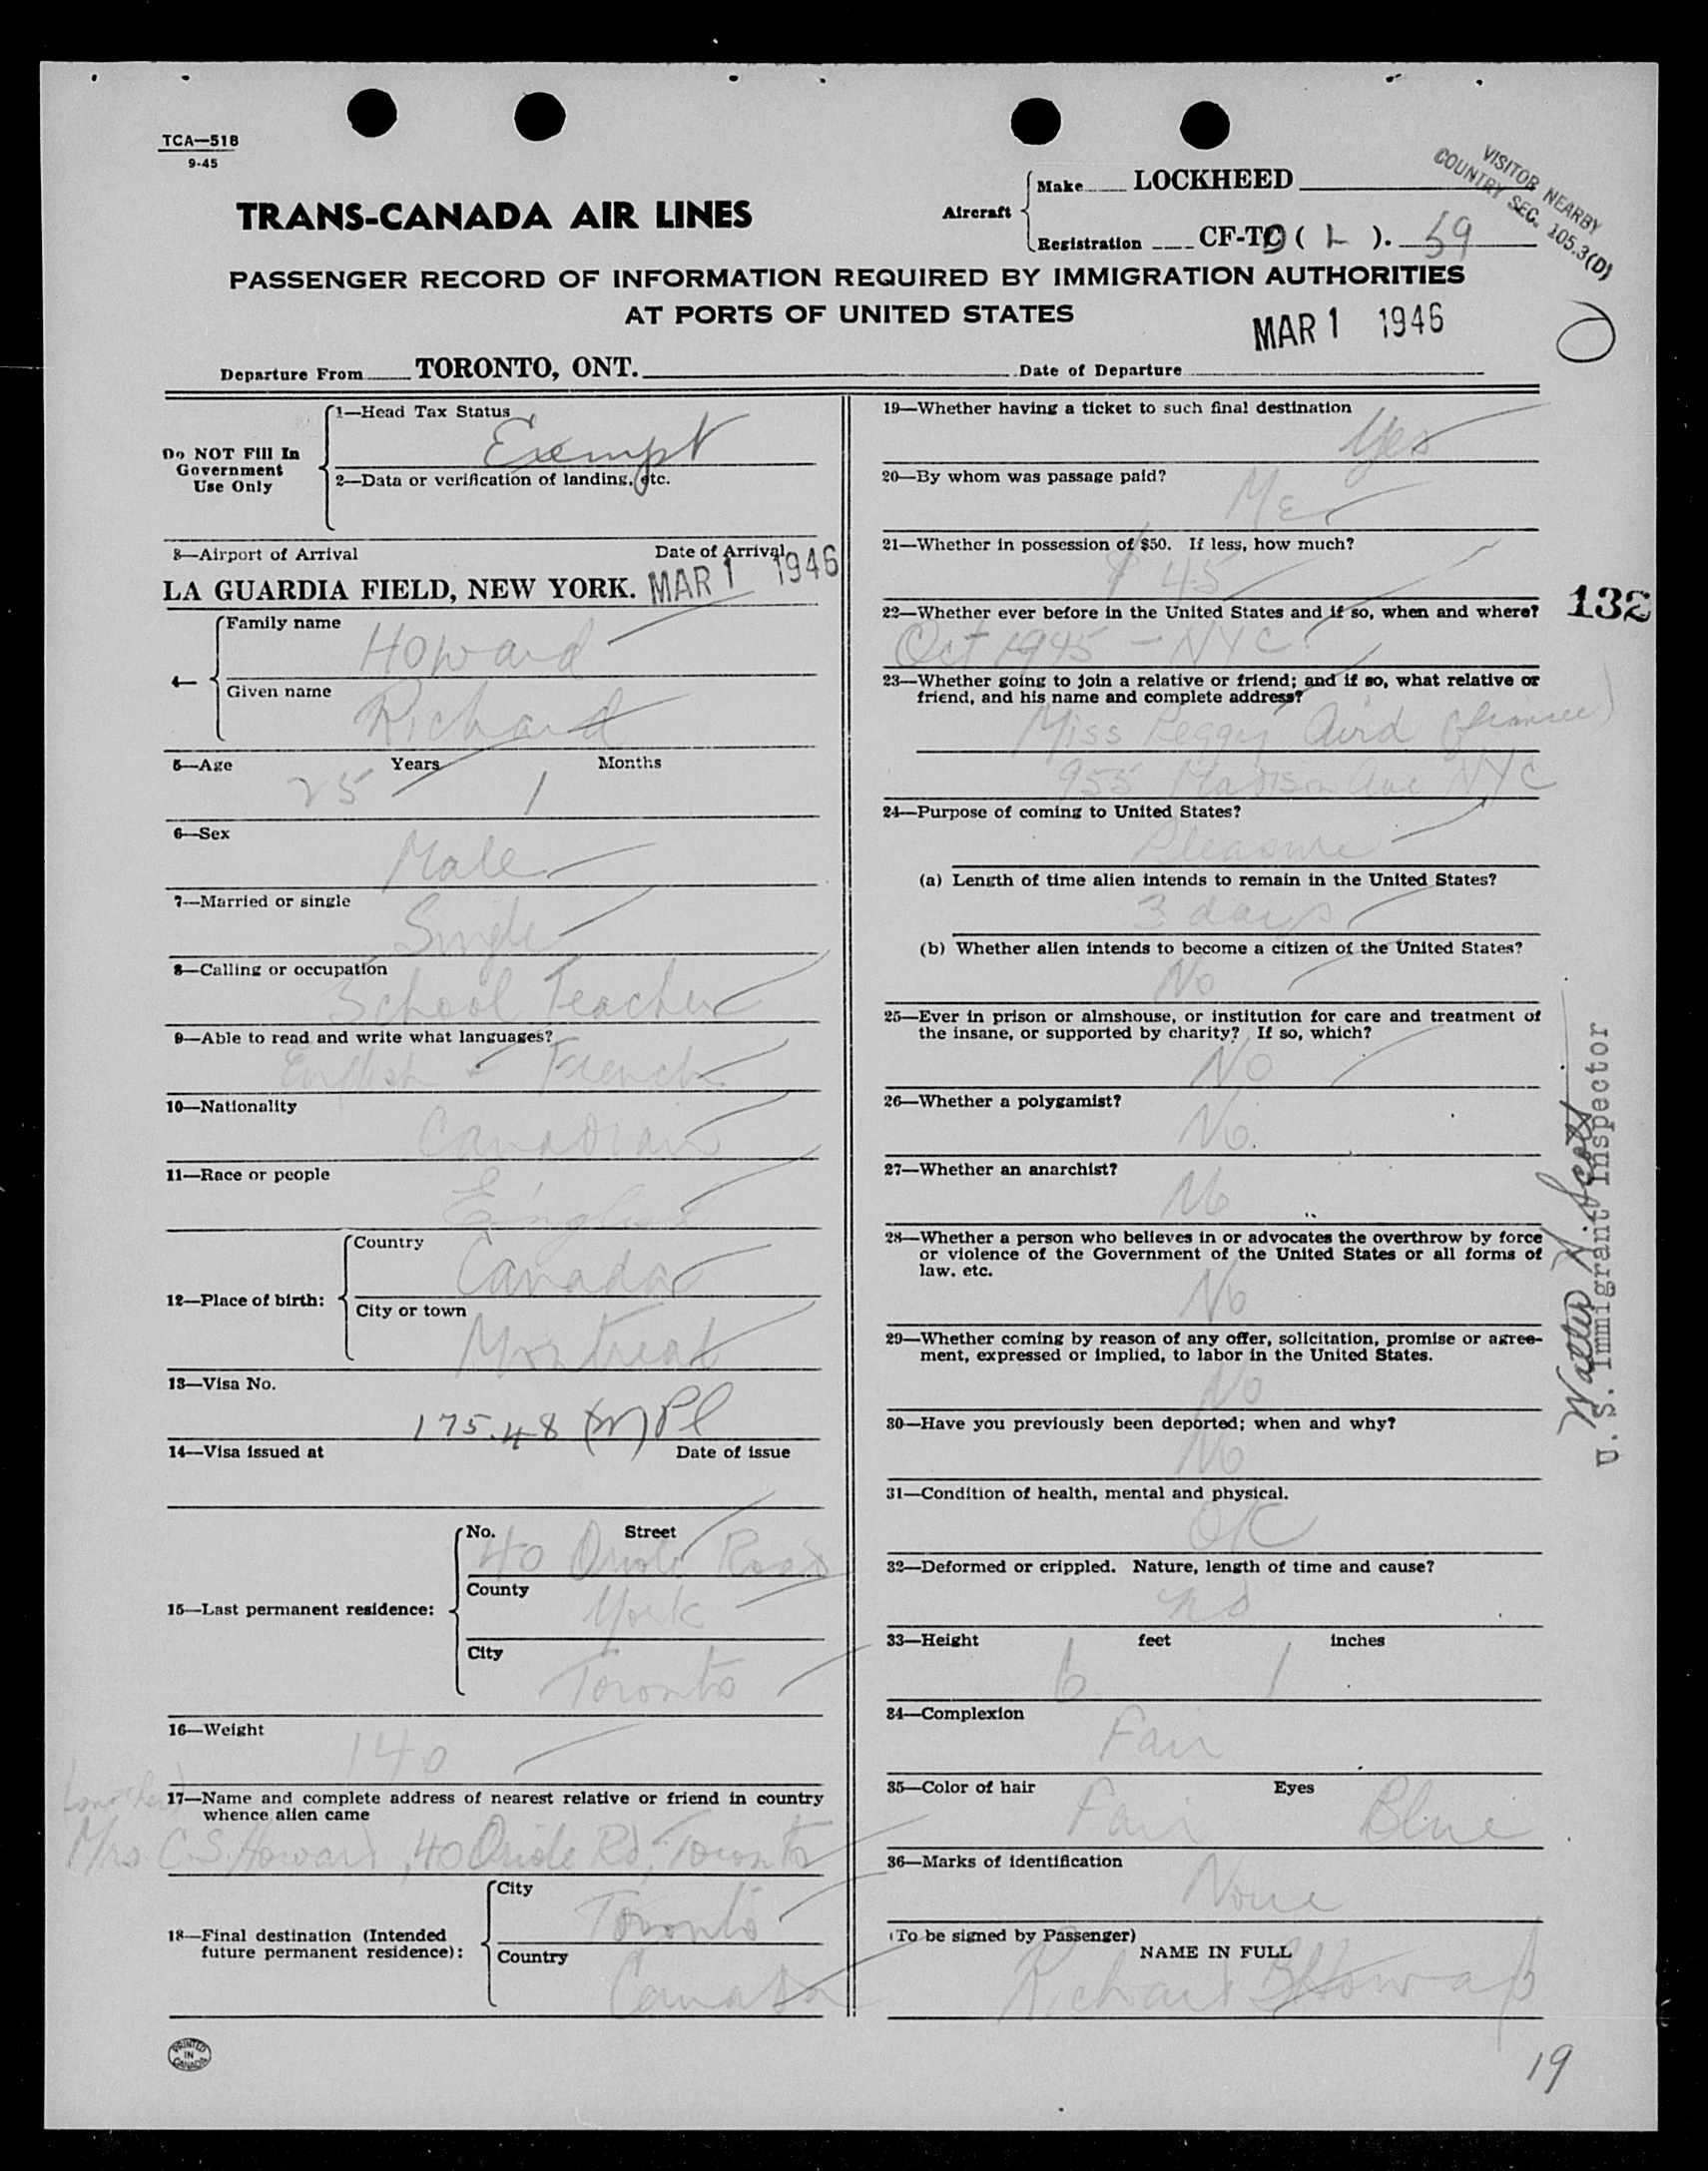 TCA—518
9-45
VISITOR NEARBY
COUNTRY SEC. 105.3(D)
TRANS-CANADA AIR LINES
Aircraft
Make LOCKHEED
Registration CF-TC ( L ). 59
PASSENGER RECORD OF INFORMATION REQUIRED BY IMMIGRATION AUTHORITIES
AT PORTS OF UNITED STATES
MAR 1 1946
Departure From TORONTO, ONT. Date of Departure
Do NOT Fill In
Government
Use Only
1—Head Tax Status
Exempt
2—Data or verification of landing, etc.
3—Airport of Arrival Date of Arrival
LA GUARDIA FIELD, NEW YORK. MAR 1 1946
4—
Family name
Howard
Given name
Richard
5—Age Years Months
25 1
6—Sex
Male
7—Married or single
Single
8—Calling or occupation
School Teacher
9—Able to read and write what languages?
English & French
10—Nationality
Canadian
11—Race or people
English
12—Place of birth:
Country
Canada
City or town
Montreal
13—Visa No.
175.48 (m) Pl
14—Visa issued at Date of issue
15—Last permanent residence:
No. Street
40 Oriole Road
County
York
City
Toronto
16—Weight
140
17—Name and complete address of nearest relative or friend in country
whence alien came
(mother)
Mrs. C.S. Howard, 40 Oriole Rd, Toronto
18—Final destination (Intended
future permanent residence):
City
Toronto
Country
Canada
PRINTED
IN
CANADA
19—Whether having a ticket to such final destination
Yes
20—By whom was passage paid?
Me
21—Whether in possession of $50. If less, how much?
$45
22—Whether ever before in the United States and if so, when and where?
Oct 1945 – NYC
23—Whether going to join a relative or friend; and if so, what relative or
friend, and his name and complete address?
Miss Peggy Aird (fiancee)
955 Madison Ave NYC
24—Purpose of coming to United States?
Pleasure
(a) Length of time alien intends to remain in the United States?
3 days
(b) Whether alien intends to become a citizen of the United States?
No
25—Ever in prison or almshouse, or institution for care and treatment of
the insane, or supported by charity? If so, which?
No
26—Whether a polygamist?
No.
27—Whether an anarchist?
No
28—Whether a person who believes in or advocates the overthrow by force
or violence of the Government of the United States or all forms of
law, etc.
No
29—Whether coming by reason of any offer, solicitation, promise or agree-
ment, expressed or implied, to labor in the United States.
No
30—Have you previously been deported; when and why?
No
31—Condition of health, mental and physical.
OK
32—Deformed or crippled. Nature, length of time and cause?
no
33—Height feet inches
6 1
34—Complexion
Fair
35—Color of hair Eyes
Fair Blue
36—Marks of identification
None
(To be signed by Passenger)
NAME IN FULL
Richard B Howard
132
Walter H. Scott
U. S. Immigrant Inspector
19